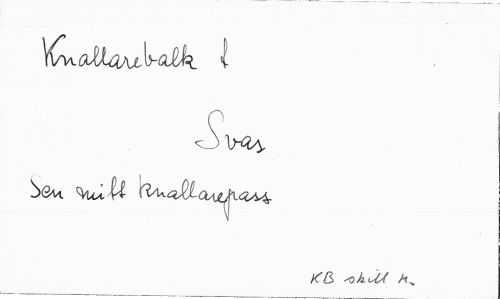 Knallarebalk f
Svas
Sen mitt knallarepass
KB skill tr.